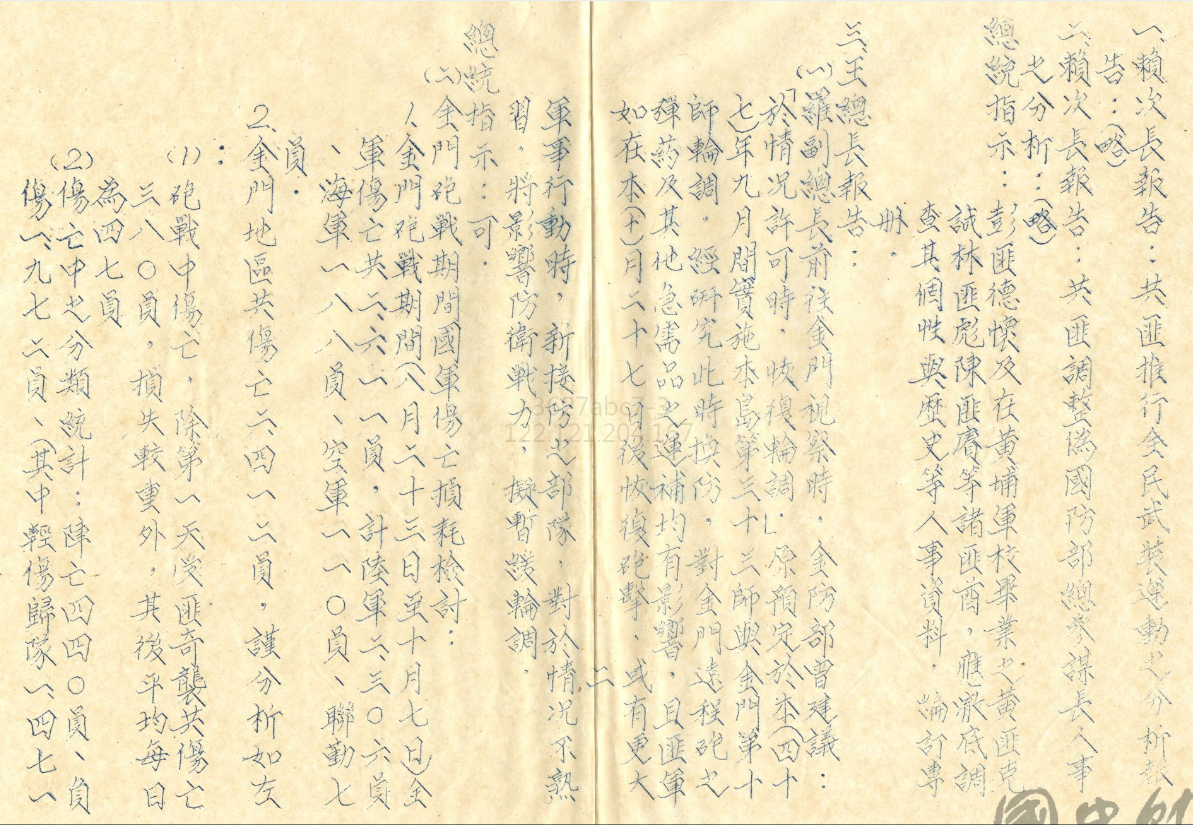 一、賴次長報告：共匪推行全民武裝運動之分析報
告：（略）
二、賴次長報告：共匪調整偽國防部總參謀長人事
之分析：（略）
總統指示：彭匪德懷及在黃埔軍校畢業之黃匪克
誠林匪彪陳匪賡等諸匪酋，應澈底調
查其個性與歷史等人事資料，編訂專
冊．
三、王總長報告：
（一）羅副總長前往金門視察時，金防部曾建議：
「於情況許可時，恢復輪調」．原預定於本（四十
七）年九月間實施本島第三十三師與金門第十
師輪調．經研究此時換防，對金門遠程砲之
彈藥及其他急需品之運補均有影響，且匪軍
如在本（十）月二十七日後恢復砲擊，或有更大
二
軍事行動時，新接防之部隊，對於情況不熟
習，將影響防衛戰力，擬暫緩輪調．
總統指示：可．
（二）金門砲戰期間國軍傷亡損耗檢討：
1.金門砲戰期間（八月二十三日至十月七日）金
軍傷亡共二、六一一員，計陸軍二、三〇六員
、海軍一八八員、空軍一一〇員、聯勤七
員．
2.金門地區共傷亡二、四一二員，謹分析如左
：
（1）砲戰中傷亡，除第一天受匪奇襲共傷亡
三八〇員，損失較重外，其後平均每日
為四七員
（2）傷亡中之分類統計：陣亡四四〇員、負
傷一、九七二員、（其中輕傷歸隊一、四七一
3687abc7-3
122.121.202.167